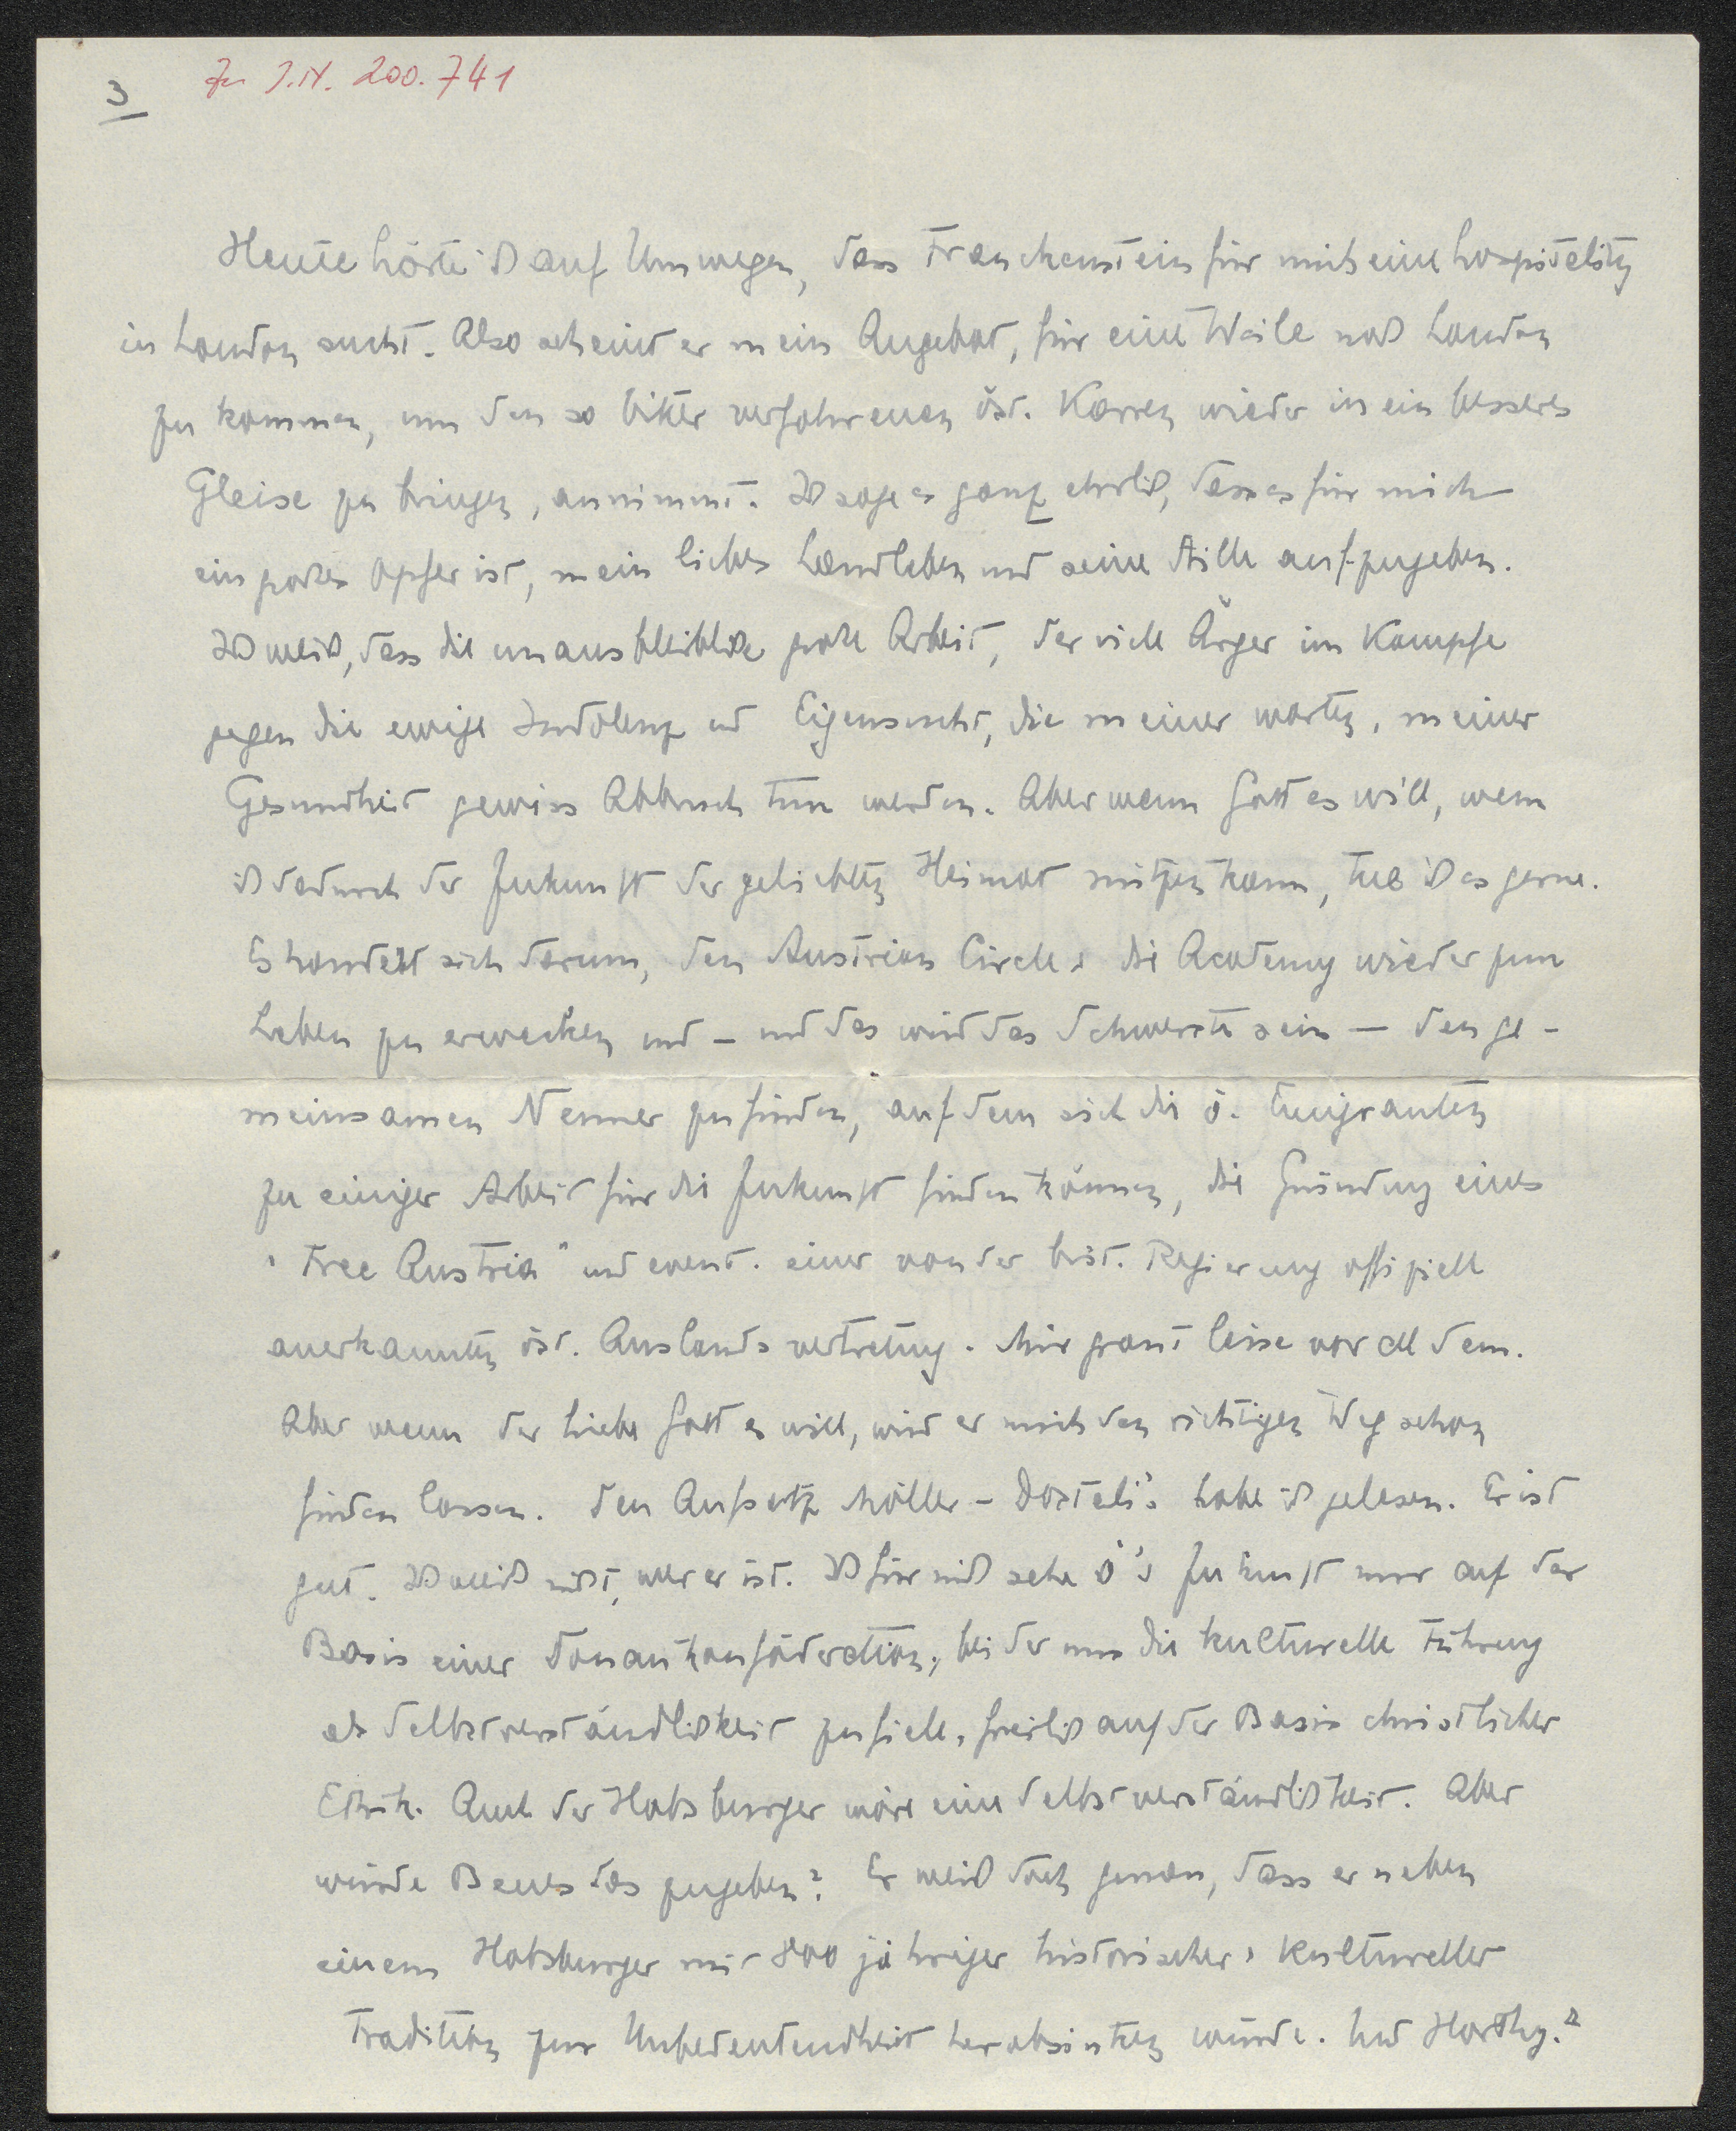 3
Zu I.N. 200.741
Heute hörte ich auf Umwegen, dass Franckenstein für mich eine hospitality
in London sucht. Also scheint er mein Angebot, für eine Weile nach London
zu kommen, um den so bitter verfahrenen öst. Karren wieder in ein besseres
Gleise zu bringen, annimmt. Ich sage es ganz ehrlich, dass es für mich
ein großes Opfer ist, mein liebes Landleben und seine Stille aufzugeben.
Ich weiß, dass die unausbleibliche große Arbeit, der viele Ärger im Kampfe
gegen die ewige Indolenz und Eigensucht, die meiner warten, meiner
Gesundheit gewiss Abbruch tun werden. Aber wenn Gott es will, wenn
ich dadurch der Zukunft der geliebten Heimat nützen kann, tue ich es gerne.
Es handelt sich darum, den Austrian Circle + die Academy wieder zum
Leben zu erwecken und – und das wird das Schwerste sein – den ge-
meinsamen Nenner zu finden, auf dem sich die ö. Emigranten
zu einiger Arbeit für die Zukunft finden können, die Gründung eines
"Free Austria" und event. einer von der brit. Regierung offiziell
anerkannten öst. Auslandsvertretung. Mir graut leise vor all dem.
Aber wenn der liebe Gott es will, wird er mich den richtigen Weg schon
finden lassen. Den Aufsatz Möller-Dostali's habe ich gelesen. Er ist
gut. Ich weiß nicht, wer er ist. Ich für mich sehe Ö's Zukunft nur auf der
Basis einer Donaukonföderation, bei der uns die kulturelle Führung
als Selbstverständlichkeit zufiele, freilich auf der Basis christlicher
Ethik. Auch der Habsburger wäre eine Selbstverständlichkeit. Aber
würde Benes das zugeben? Er weiß doch genau, dass er neben
einem Habsburger mit 800 jähriger historischer + kultureller
Tradition zur Unbedeutendheit herabsinken würde. Und Horthy?